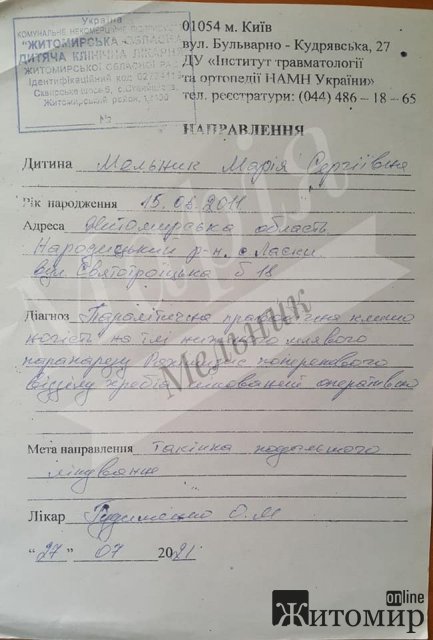 Україна
КОМУНАЛЬНЕ НЕКОМЕРЦІЙНЕ ПІДПРИЄМСТВО
"ЖИТОМИРСЬКА ОБЛАСНА
ДИТЯЧА КЛІНІЧНА ЛІКАРНЯ"
ЖИТОМИРСЬКОЇ ОБЛАСНОЇ РАДИ
Ідентифікаційний код
Житомирський район,
№
01054 м. Київ
вул. Бульварно - Кудрявська, 27
ДУ «Інститут травматології
та ортопедії НАМН України»
тел. реєстратури: (044) 486 – 18 – 65
НАПРАВЛЕННЯ
Дитина Мельник Марія Сергіївна
Рік народження 15.05.2011
Адреса Житомирська область
Народицький р-н. с Ласки
вул Святотроїцька б 18
Діагноз Паралітична клишо
ногість на тлі нижнього млявого
парапарезу поперекового
відділу хребта оперативно
Мета направлення тактика подальшого
лікування
Лікар О.М
"27" 07 2021
Марія
Мельник
Житомир online